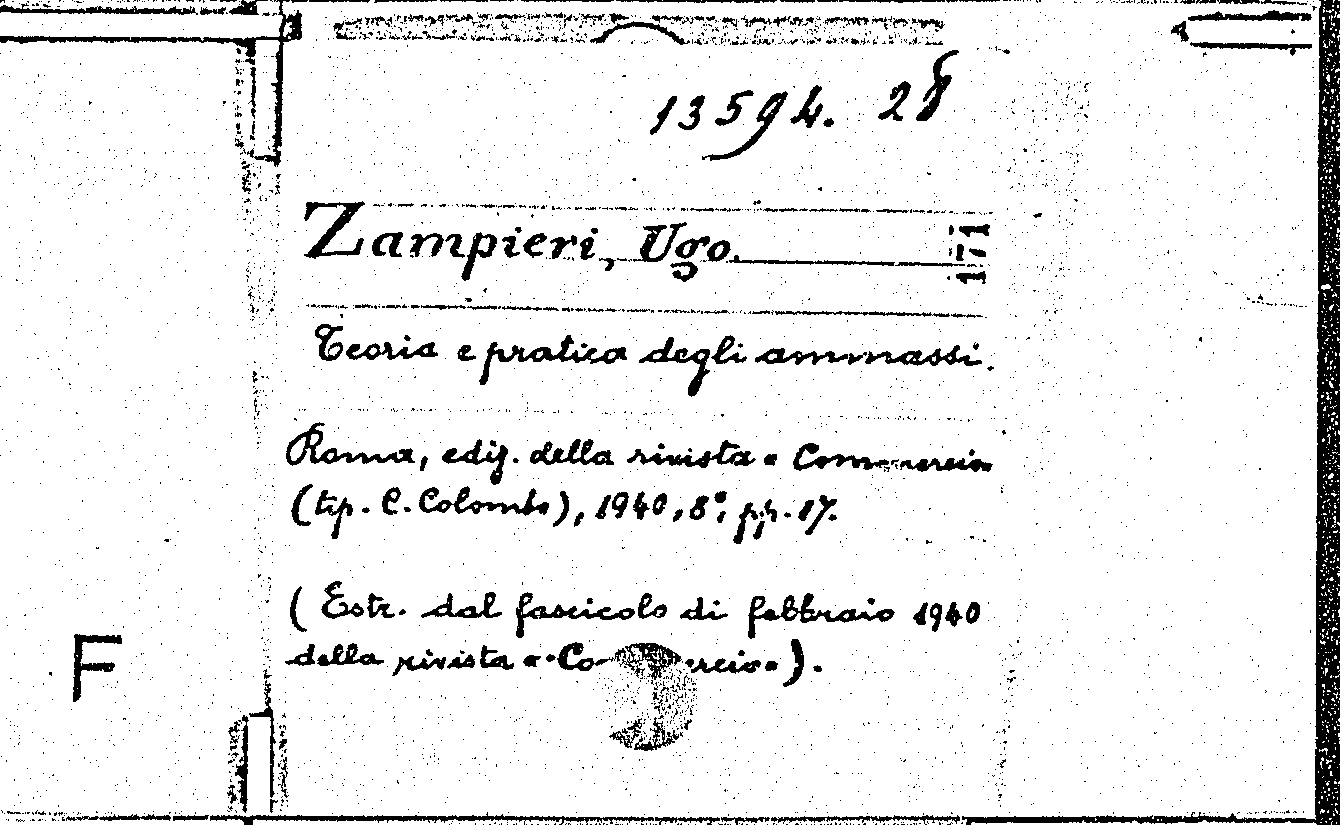 13594. 28
Zampieri, Ugo.
171
Teoria e pratica degli ammassi.
Roma, ediz. della rivista « Commercio»
(tip. C. Colombo), 1940, 8°, pp. 17.
( Estr. dal fascicolo di febbraio 1940
della rivista « Co ercio» ).
F